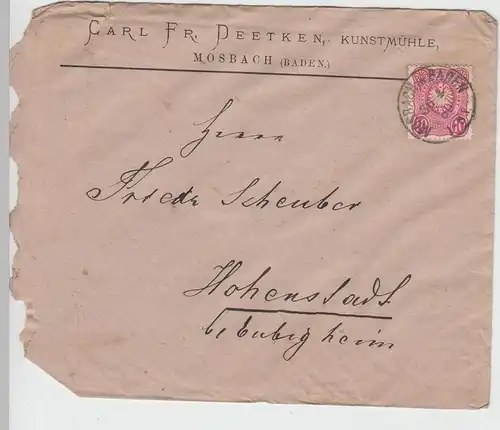 CARL FR. DEETKEN, KUNSTMÜHLE,
MOSBACH (BADEN.)
BADEN
10
Herrn
Friedr Scheuber
Hohenstadt
b/ Eubigheim